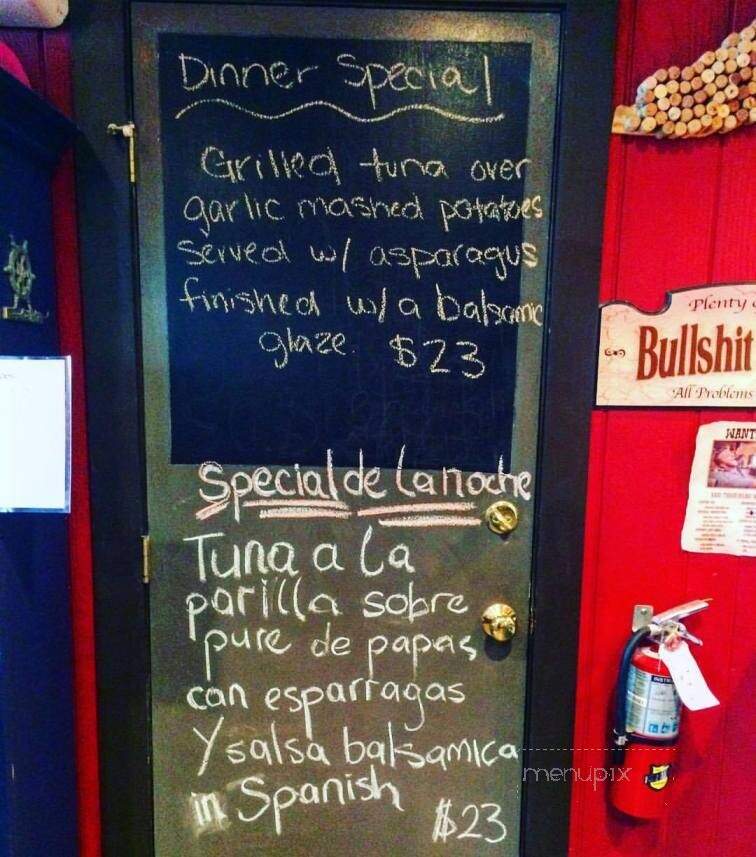 Dinner Special
Grilled tuna over
garlic mashed potatoes
Served w/ asparagus
finished w/a balsamic
glaze. $23
Special de La noche
Tuna a la
parilla sobre
pure de papas
can esparragas
Y salsa balsamica
in Spanish
$23
Plenty
Bullshit
All Problems
WANT
menupix